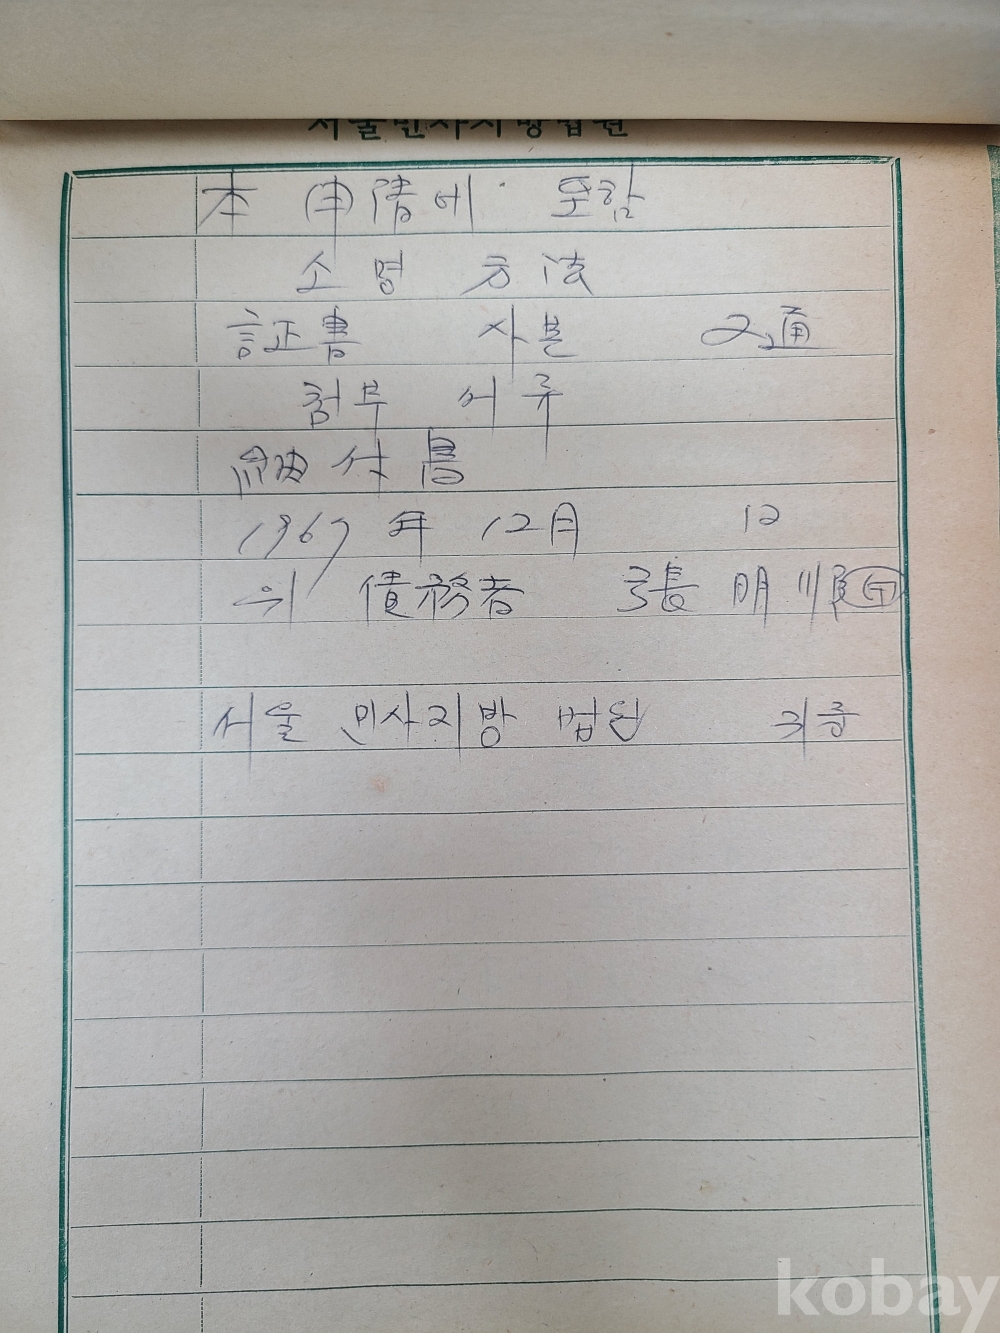 서울민사지방법원
本 申請에 토함
소명 方法
証正書 사본 2通
첨부 서류
1967年 12月 12
위 債務者 張明順 印
서울 민사지방 법원 귀중
kobay